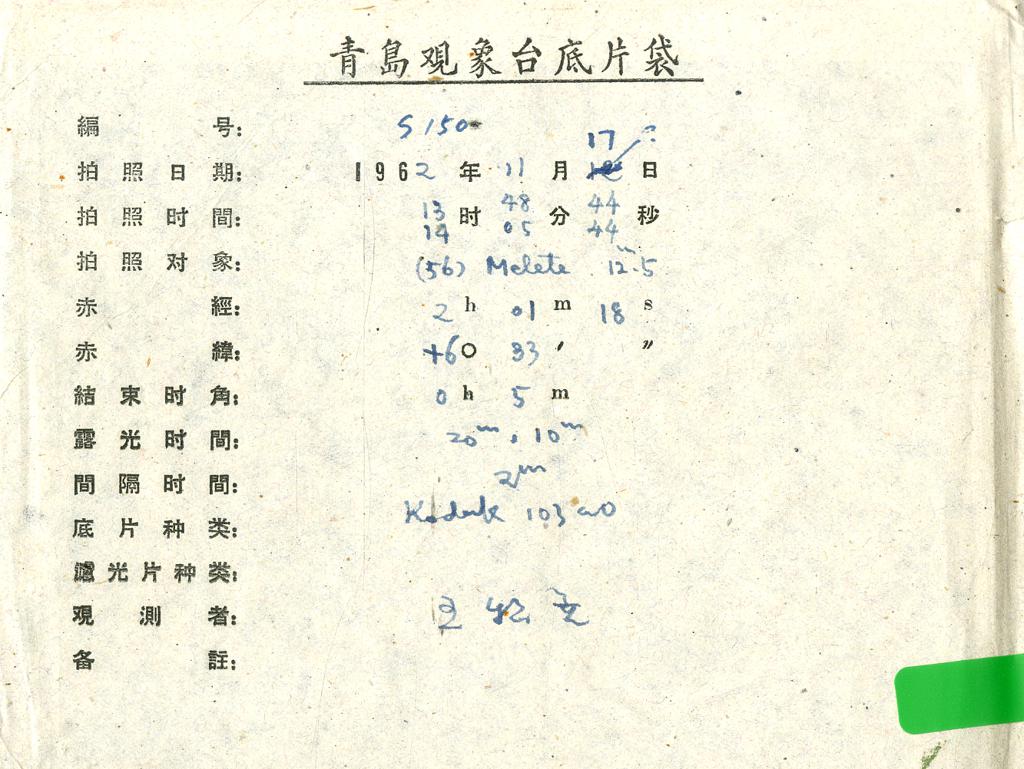 青島观象台底片袋
編号: S150
17 ?
拍照日期: 1962年11月日
拍照时間: 13时48分44秒
14 05 44
拍照对象: (56) Melete 12.5m
赤經: 2h 01m 18s
赤緯: +6° 33′ ″
結束时角: 0h 5m
露光时間: 20m, 10m
間隔时間: 2m
底片种类: Kodak 103aO
濾光片种类:
观測者: 王
备註: